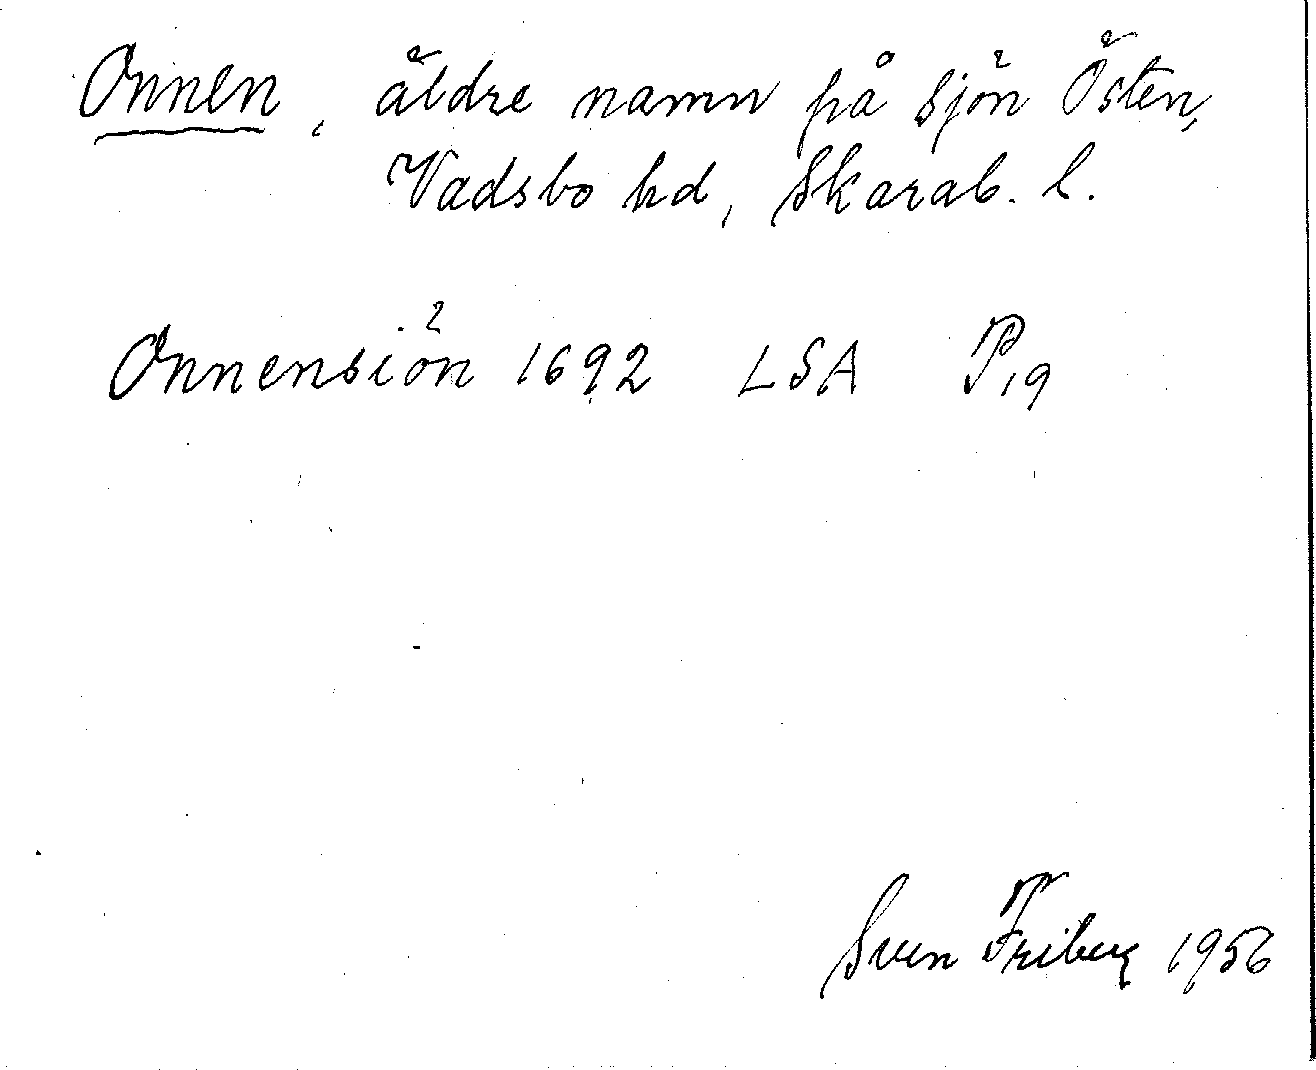 Onnen, äldre namn på sjön Östen,
Vadsbo hd, Skarab. l.
Onnensiön 1692 LSA P19
Sven Friberg 1956